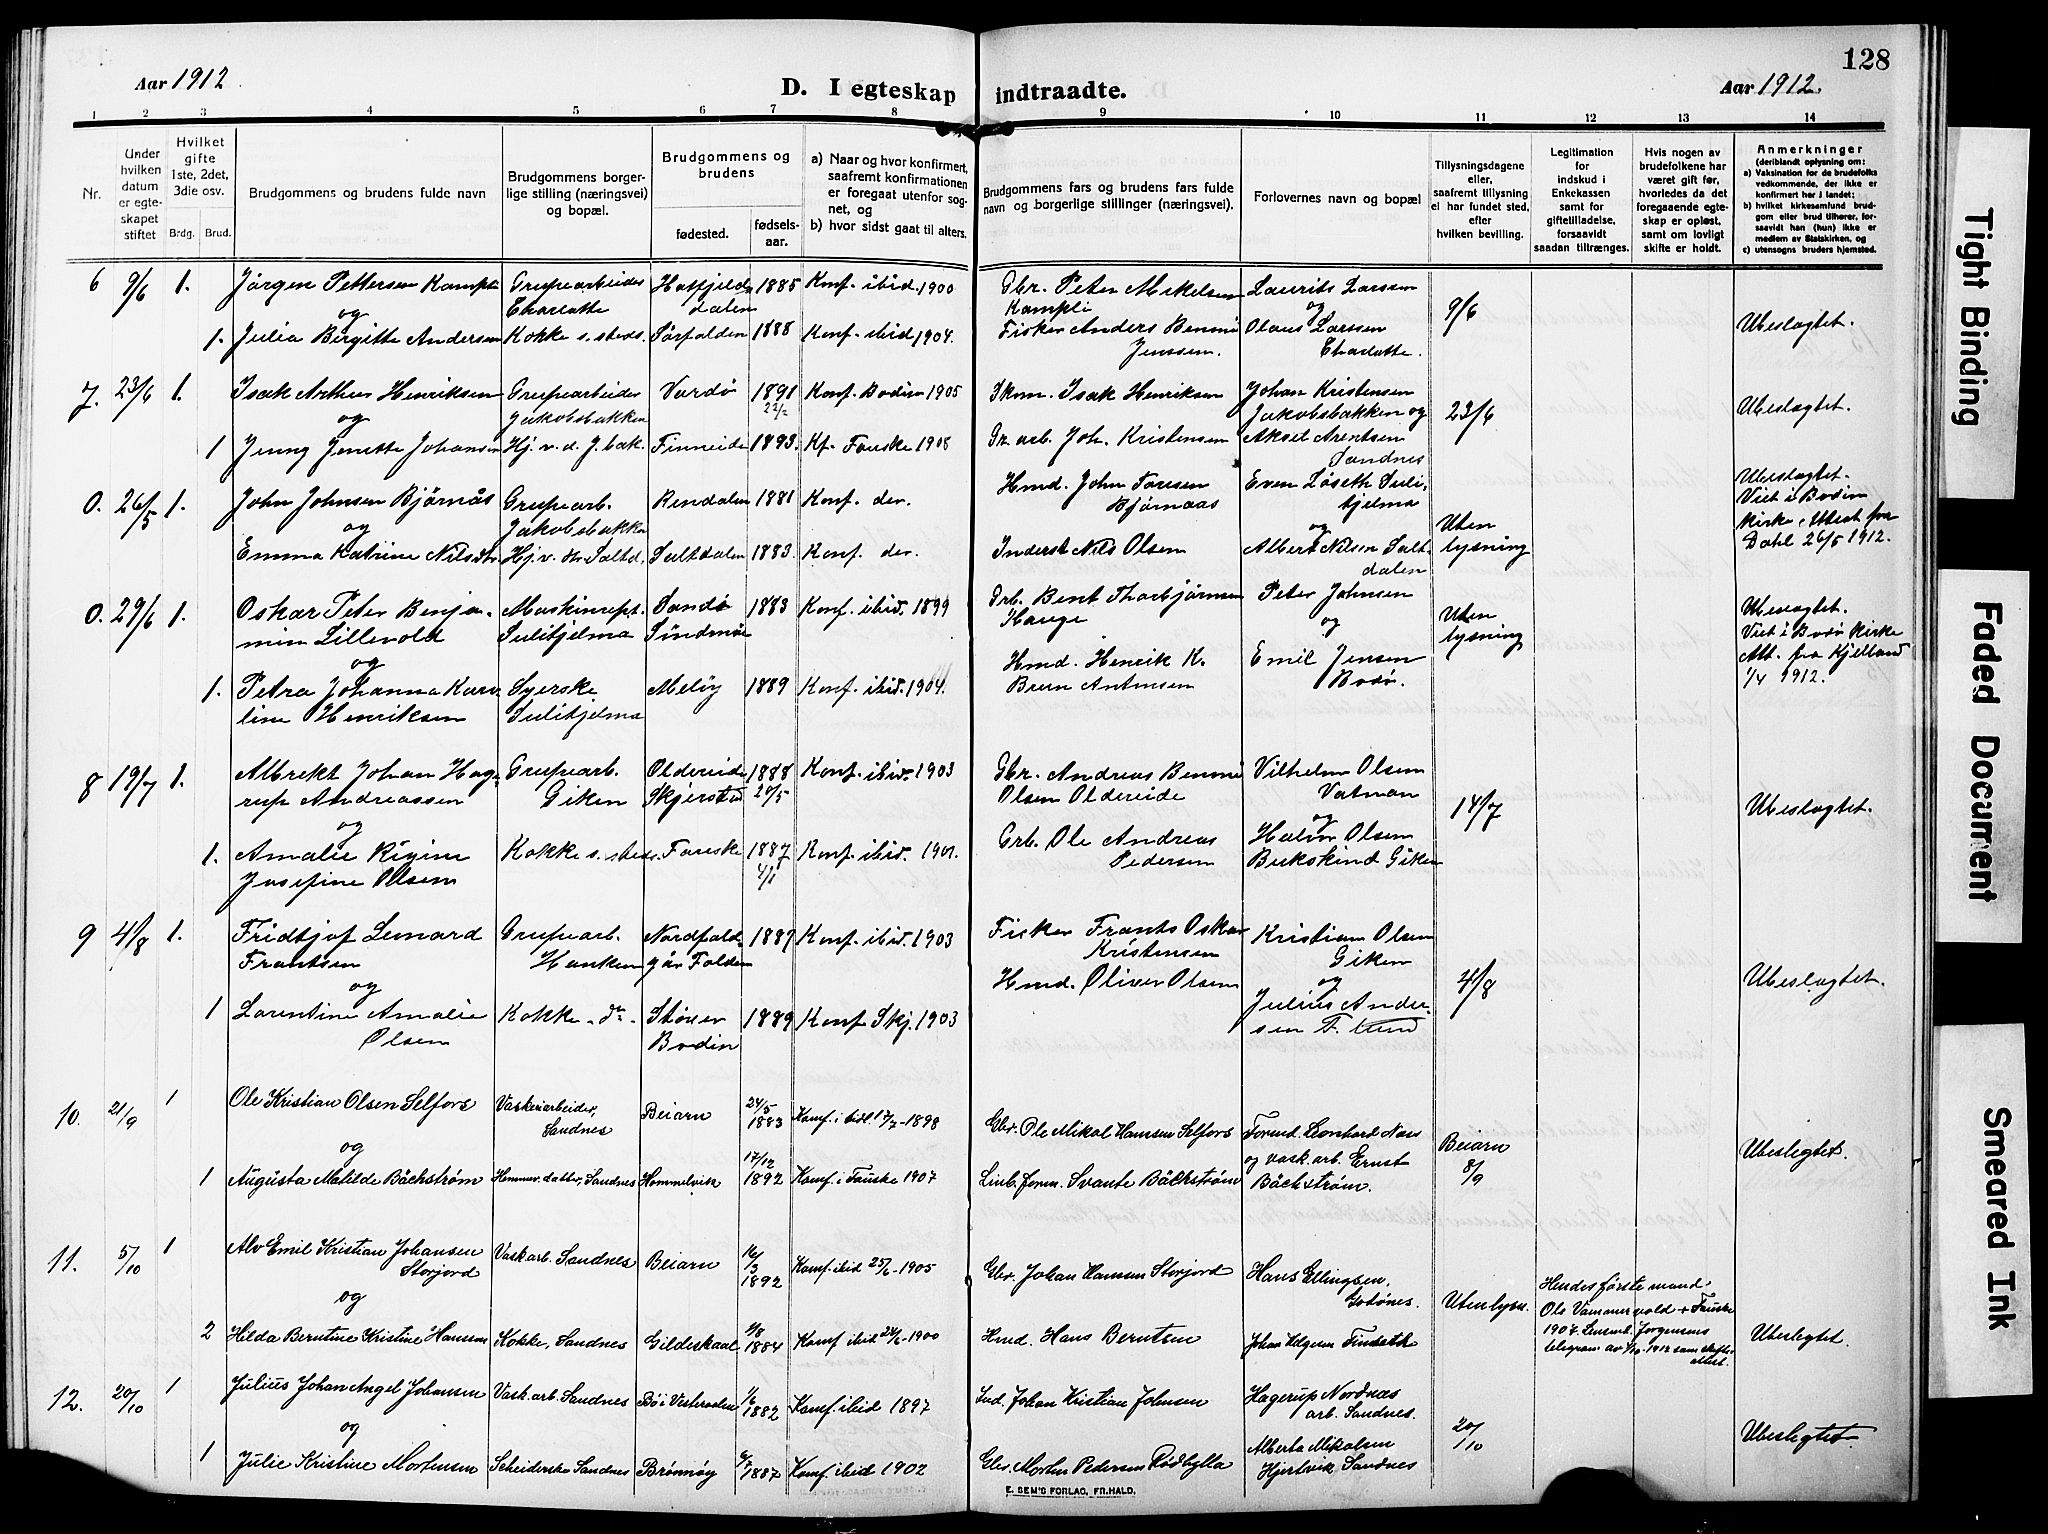 128
Aar 1912
D. I egteskap indtraadte.
Aar 1912.
1 2 3 4 5 6 7 8 9 10 11 12 13 14
Nr.
Under hvilken datum er egteskapet stiftet
Hvilket gifte 1ste, 2det, 3die osv.
Brdg. Brud.
Brudgommens og brudens fulde navn
Brudgommens borgerlige stilling (næringsvei) og bopæl.
Brudgommens og brudens
fødested.
fødselsaar.
a) Naar og hvor konfirmert, saafremt konfirmationen er foregaat utenfor sognet, og
b) hvor sidst gaat til alters.
Brudgommens fars og brudens fars fulde navn og borgerlige stillinger (næringsvei).
Forlovernes navn og bopæl
Tillysningsdagene eller, saafremt tillysning ei har fundet sted, efter hvilken bevilling.
Legitimation for indskud i Enkekassen samt for giftetilladelse, forsaavidt saadan tiltrænges.
Hvis nogen av brudefolkene har været gift før, hvorledes da det foregaaende egteskap er opløst, samt om lovligt skifte er holdt.
Anmerkninger
(deriblandt oplysning om:
a) Vaksination for de brudefolks vedkommende, der ikke er konfirmert her i landet;
b) hvilket kirkesamfund brudgom eller brud tilhører, forsaavidt han (hun) ikke er medlem av Statskirken, og
c) utensogns bruders hjemsted.
6 9/6 1. Jørgen Pettersen Kampli Grubearbeider Charlotte Hatfjelddalen 1885 Konf. ibid. 1900 Gbr. Peter Mikelsen Kampli Laurits Larssen 9/6
og
1. Julia Birgitte Andersen Kokke s. steds. Sørfolden 1888 Konf. ibid 1904. Fisker Anders Benmi Jenssen. og Olaus Larssen Charlotte. Ubeslægtet.
7. 23/6 1. Isak Arthur Henriksen Grubearbeider Jakobsbakken Vardø 1891 22/2 Konf. Bodin 1905 Skom. Isak Henriksen Johan Kristensen Jakobsbakken og 23/6 Ubeslægtet.
og
1 Jenny Jenette Johansen Hj. v. d. J. bak. Finneide 1893. Kf. Fauske 1908 Gr. arb. Joh. Kristensen Aksel Arentsen Sandnes
0. 26/5 1. John Johnsen Bjørnås Grubearb. Jakobsbakken Rendalen 1881 Konf. der. Hmd. John Toresen Bjørnaas Even Løseth Sulitjelma Uten lysning Ubeslægtet. Viet i Bodin kirke. Attest fra Dahl 26/5 1912.
og
Emma Katrine Nilsdtr. Hj. v. Saltd. Saltdalen 1883. Konf. der. Inderst Nils Olsen og Albert Nilsen Saltdalen
0. 29/6 1. Oskar Peter Benjamin Lillevold Maskinrept. Sulitjelma Sandø Søndmør 1883 Konf. ibid. 1899 Grb. Bent Thorbjørnsen Hauge Peter Johnsen Uten lysning Ubeslægtet. Viet i Bodø kirke Att. fra Kjelland 1/7 1912.
og
1. Petra Johanna Karoline Henriksen Syerske Sulitjelma Meløy 1889 Konf. ibid. 1904 Hmd. Henrik K. Breun Antonsen og Emil Jensen Bodø.
8 19/7 1. Albrekt Johan Hagerup Andreassen Grubearb. Giken Oldereid Skjerstad 1888 20/5 Konf. ibid. 1903 Gbr. Andreas Benmi Olsen Oldereide Vilhelm Olsen Vatman 14/7 Ubeslægtet.
og
1. Amalie Regine Josefine Olsen Kokke s. steds. Fauske 1887 4/1 Konf. ibid. 1901. Grb. Ole Andreas Pedersen og Halvor Olsen Burkskind Giken
9 4/8 1. Fridtjof Lenard Frantsen Grubearb. Hanken Nordfold 1887 Konf. ibid. 1903 Fisker Frants Oskar Kristensen Kristian Olsen Giken 4/8 Ubeslægtet.
og
1 Lorentine Amalie Olsen Kokke - do - Støver Bodin 1889 Konf. Skj. 1903 Hmd. Oliver Olsen og Julius Andersen F. lund
10. 21/9 1 Ole Kristian Olsen Selfors Vaskeriarbeider, Sandnes Beiarn 24/5 1883 Konf. i ibid. 17/7-1898 Gbr. Ole Mikal Hanssen Selfors Formd. Leonhard Næss Beiarn 8/9 Ubeslegtet.
og
1 Augusta Matilde Bäckstrøm Hemmev. datter, Sandnes Hommelvik 17/12 1892 Konf. i Fauske 1907 Linb. form. Svante Bäckstrøm og vask. arb. Ernst Bäckstrøm.
11. 5/10 1 Alv Emil Kristian Johansen Storjord Vaskarb. Sandnes Beiarn 16/3 1892 Konf. ibid 25/6-1905 Gbr. Johan Hansen Storjord Hans Ellingsen, Godønes. Uten lysn. Hendes første mand: Ole Vammervold + Fauske 1907. Lensm. Jørgensens telegram av 1/10-1912 som skifteattest.
og
2 Hilda Berntine Kristine Hanssen Kokke, Sandnes Gildeskaal 4/8 1884 Konf. ibid 24/6-1900 Hmd. Hans Berntsen Johan Helgesen Finseth Ubeslegtet
12. 20/10 1 Julius Johan Angel Johansen Vask. arb. Sandnes Bø i Vesteraalen 1/6 1882 Konf. ibid 1897 Ind. Johan Kristian Johnsen Hagerup Nordnæs arb. Sandnes. 20/10 Ubeslegtet.
og
1 Julie Kristine Mortensen Skeiderske Sandnes Brønnøy 6/7 1887 Konf. ibid 1902 Gbr. Morten Pedersen Rødhylla Alberta Mikalsen Hjertvik Sandnes
E. SEM'S FORLAG, FR.HALD.
Tight Binding
Faded Document
Smeared Ink